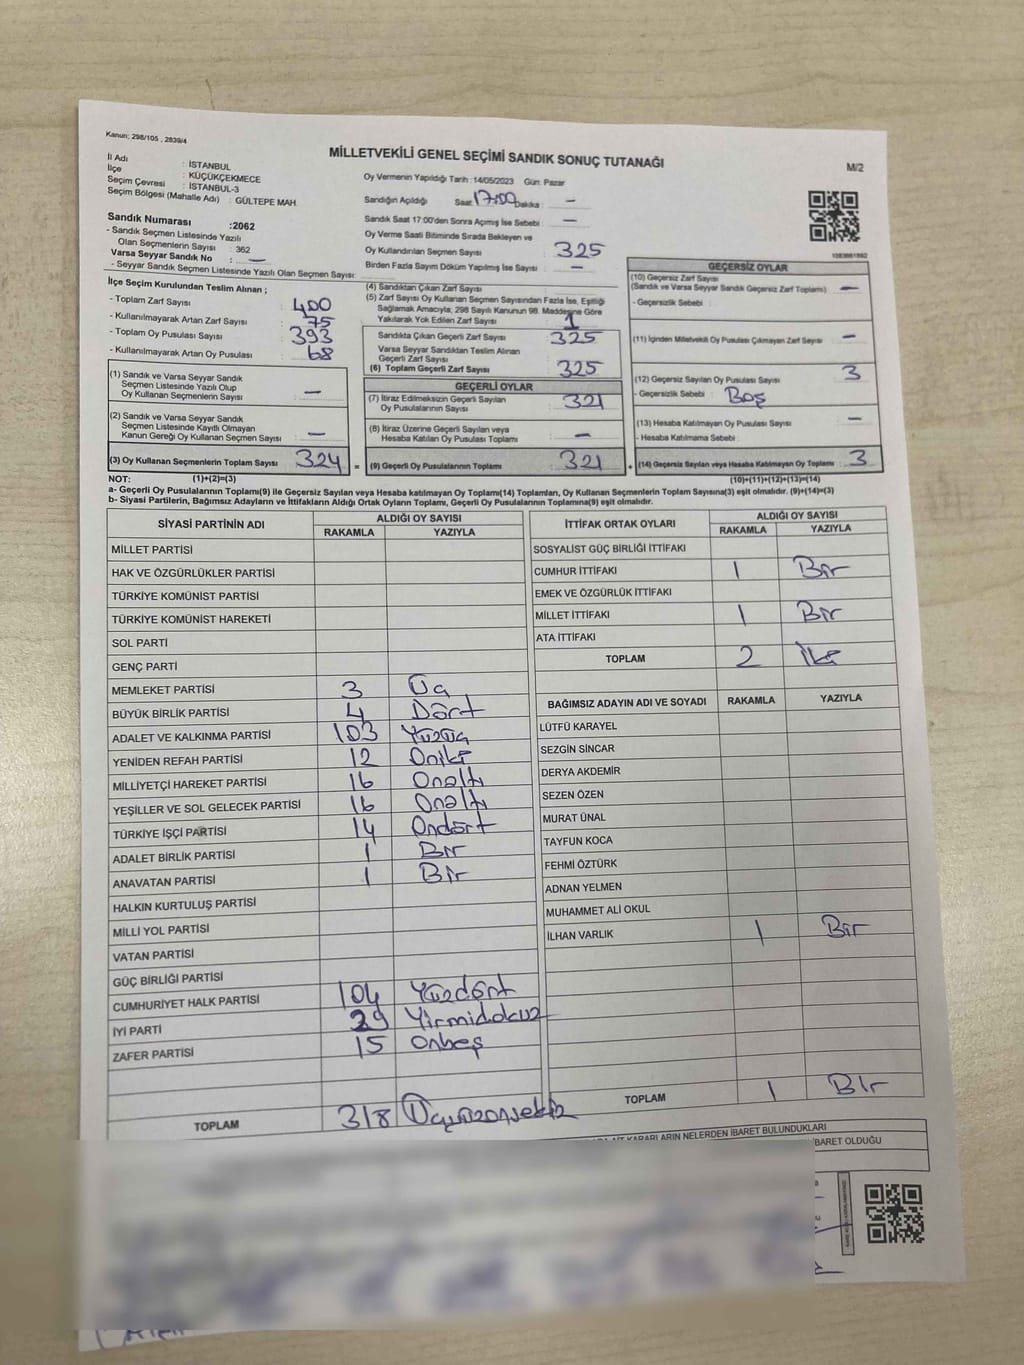 Kanun; 298/105 , 2839/4
MİLLETVEKİLİ GENEL SEÇİMİ SANDIK SONUÇ TUTANAĞI
M/2
İl Adı : İSTANBUL
İlçe : KÜÇÜKÇEKMECE
Seçim Çevresi : İSTANBUL-3
Seçim Bölgesi (Mahalle Adı) : GÜLTEPE MAH.
Oy Vermenin Yapıldığı Tarih : 14/05/2023 Gün: Pazar
Sandığın Açıldığı Saat 17:00 Dakika : —
Sandık Saat 17:00'den Sonra Açımış İse Sebebi : —
Oy Verme Saati Bitiminde Sırada Bekleyen ve
Oy Kullandırılan Seçmen Sayısı : 325
Birden Fazla Sayım Döküm Yapılmış İse Sayısı : —
Sandık Numarası :2062
- Sandık Seçmen Listesinde Yazılı
Olan Seçmenlerin Sayısı : 362
Varsa Seyyar Sandık No : —
- Seyyar Sandık Seçmen Listesinde Yazılı Olan Seçmen Sayısı:
İlçe Seçim Kurulundan Teslim Alınan ;
- Toplam Zarf Sayısı : 400
- Kullanılmayarak Artan Zarf Sayısı : 75
- Toplam Oy Pusulası Sayısı : 393
- Kullanılmayarak Artan Oy Pusulası : 68
(1) Sandık ve Varsa Seyyar Sandık
Seçmen Listesinde Yazılı Olup
Oy Kullanan Seçmenlerin Sayısı : —
(2) Sandık ve Varsa Seyyar Sandık
Seçmen Listesinde Kayıtlı Olmayan
Kanun Gereği Oy Kullanan Seçmen Sayısı : —
(3) Oy Kullanan Seçmenlerin Toplam Sayısı : 324 =
(4) Sandıktan Çıkan Zarf Sayısı
(5) Zarf Sayısı Oy Kullanan Seçmen Sayısından Fazla İse, Eşitliği
Sağlamak Amacıyla, 298 Sayılı Kanunun 98. Maddesine Göre
Yakılarak Yok Edilen Zarf Sayısı : 1
Sandıkta Çıkan Geçerli Zarf Sayısı : 325
Varsa Seyyar Sandıktan Teslim Alınan
Geçerli Zarf Sayısı
(6) Toplam Geçerli Zarf Sayısı : 325
GEÇERLİ OYLAR
(7) İtiraz Edilmeksizin Geçerli Sayılan
Oy Pusulalarının Sayısı : 321
(8) İtiraz Üzerine Geçerli Sayılan veya
Hesaba Katılan Oy Pusulası Toplamı : —
(9) Geçerli Oy Pusulalarının Toplamı : 321 +
GEÇERSİZ OYLAR
(10) Geçersiz Zarf Sayısı
(Sandık ve Varsa Seyyar Sandık Geçersiz Zarf Toplamı) : —
- Geçersizlik Sebebi :
(11) İçinden Milletvekili Oy Pusulası Çıkmayan Zarf Sayısı : —
(12) Geçersiz Sayılan Oy Pusulası Sayısı : 3
- Geçersizlik Sebebi : Boş
(13) Hesaba Katılmayan Oy Pusulası Sayısı : —
- Hesaba Katılmama Sebebi :
(14) Geçersiz Sayılan veya Hesaba Katılmayan Oy Toplamı : 3
NOT: (1)+(2)=(3) (10)+(11)+(12)+(13)=(14)
a- Geçerli Oy Pusulalarının Toplamı(9) ile Geçersiz Sayılan veya Hesaba katılmayan Oy Toplamı(14) Toplamları, Oy Kullanan Seçmenlerin Toplam Sayısına(3) eşit olmalıdır. (9)+(14)=(3)
b- Siyasi Partilerin, Bağımsız Adayların ve İttifakların Aldığı Ortak Oyların Toplamı, Geçerli Oy Pusulalarının Toplamına(9) eşit olmalıdır.
SİYASİ PARTİNİN ADI ALDIĞI OY SAYISI
RAKAMLA YAZIYLA
MİLLET PARTİSİ
HAK VE ÖZGÜRLÜKLER PARTİSİ
TÜRKİYE KOMÜNİST PARTİSİ
TÜRKİYE KOMÜNİST HAREKETİ
SOL PARTİ
GENÇ PARTİ
MEMLEKET PARTİSİ 3 Üç
BÜYÜK BİRLİK PARTİSİ 4 Dört
ADALET VE KALKINMA PARTİSİ 103 Yüzüç
YENİDEN REFAH PARTİSİ 12 Oniki
MİLLİYETÇİ HAREKET PARTİSİ 16 Onaltı
YEŞİLLER VE SOL GELECEK PARTİSİ 16 Onaltı
TÜRKİYE İŞÇİ PARTİSİ 14 Ondört
ADALET BİRLİK PARTİSİ 1 Bir
ANAVATAN PARTİSİ 1 Bir
HALKIN KURTULUŞ PARTİSİ
MİLLİ YOL PARTİSİ
VATAN PARTİSİ
GÜÇ BİRLİĞİ PARTİSİ
CUMHURİYET HALK PARTİSİ 104 Yüzdört
İYİ PARTİ 29 Yirmidokuz
ZAFER PARTİSİ 15 Onbeş
TOPLAM 318 Üçyüzonsekiz
İTTİFAK ORTAK OYLARI ALDIĞI OY SAYISI
RAKAMLA YAZIYLA
SOSYALİST GÜÇ BİRLİĞİ İTTİFAKI
CUMHUR İTTİFAKI 1 Bir
EMEK VE ÖZGÜRLÜK İTTİFAKI
MİLLET İTTİFAKI 1 Bir
ATA İTTİFAKI
TOPLAM 2 İki
BAĞIMSIZ ADAYIN ADI VE SOYADI RAKAMLA YAZIYLA
LÜTFÜ KARAYEL
SEZGİN SİNCAR
DERYA AKDEMİR
SEZEN ÖZEN
MURAT ÜNAL
TAYFUN KOCA
FEHMİ ÖZTÜRK
ADNAN YELMEN
MUHAMMET ALİ OKUL
İLHAN VARLIK 1 Bir
TOPLAM 1 Bir
KARARLARIN NELERDEN İBARET BULUNDUKLARI
İBARET OLDUĞU